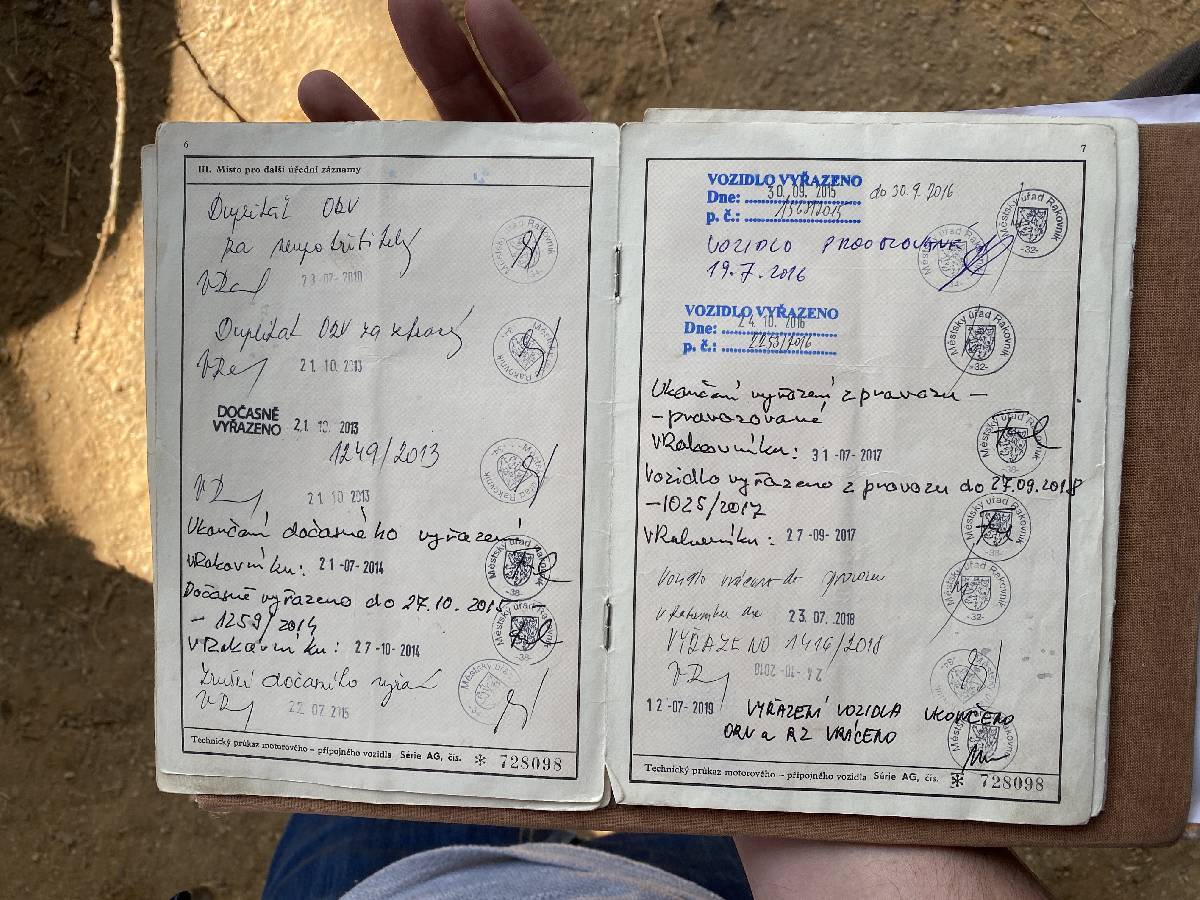 6
III. Místo pro další úřední záznamy
Duplikát ORV
za neupotřebitelný
23-07-2010
Duplikát ORV za ztracený
21. 10. 2013
DOČASNĚ
VYŘAZENO 21. 10. 2013
1249/2013
21. 10. 2013
Ukončení dočasného vyřazení
VRakovníku: 21-07-2014
Dočasně vyřazeno do 27.10.2015
- 1259/2014
VRakovníku: 27-10-2014
Zrušení dočasného vyřaz
22. 07. 2015
Technický průkaz motorového – přípojného vozidla Série AG, čís. ✻ 728098
7
VOZIDLO VYŘAZENO
Dne: 30. 09. 2015 do 30.9.2016
p. č.:
VOZIDLO PROVOZOVANÉ
19.7.2016
VOZIDLO VYŘAZENO
Dne: 24. 10. 2016
p. č.: 2253/2016
Ukončení vyřazení z provozu –
– provozované
VRakovníku: 31-07-2017
Vozidlo vyřazeno z provozu do 27.09.2018
– 1025/2017
VRakovníku: 27-09-2017
Vozidlo vráceno do provozu
V Rakovníku dne 23. 07. 2018
VYŘAZENO 1416/2018
24-10-2018
12-07-2019 VYŘAZENÍ VOZIDLA UKONČENO
ORV a RZ VRÁCENO
Městský úřad Rakovník
-32-
Městský úřad Rakovník
Městský úřad Rakovník
-38-
Technický průkaz motorového – přípojného vozidla Série AG, čís. ✻ 728098